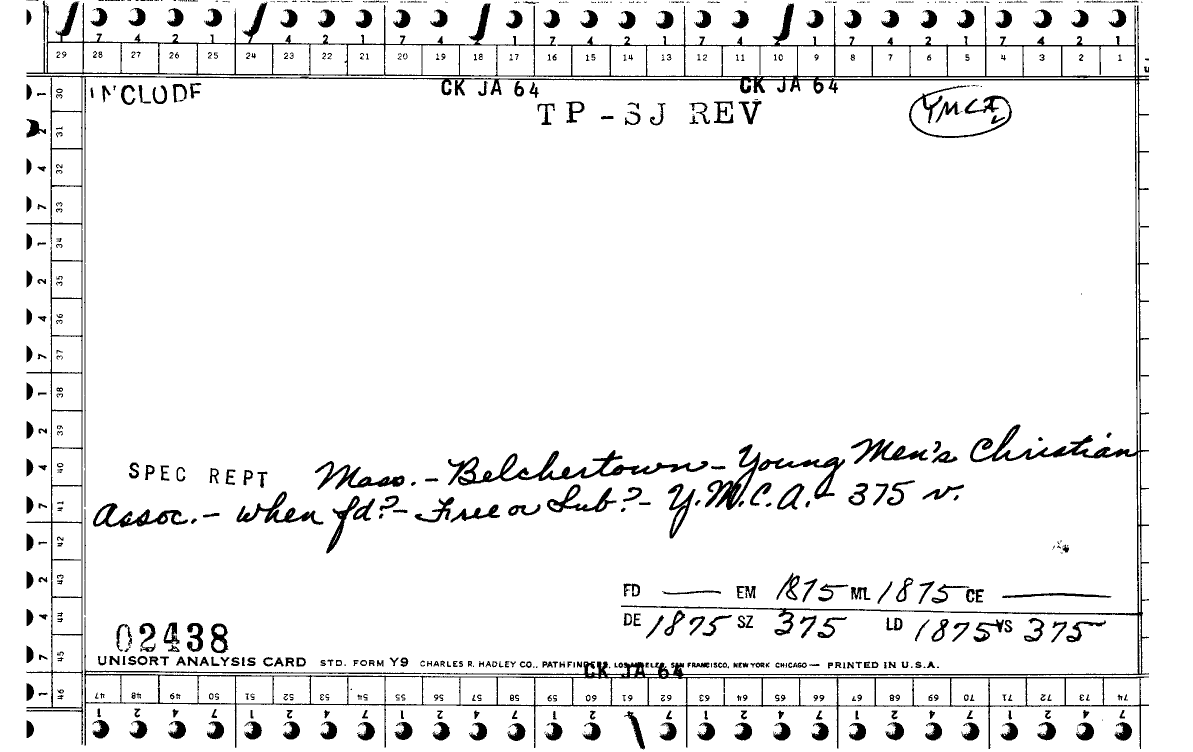 7 4 2 1 7 4 2 1 7 4 2 1 7 4 2 1 7 4 2 1 7 4 2 1
29 28 27 26 25 24 23 22 21 20 19 18 17 16 15 14 13 12 11 10 9 8 7 6 5 4 3 2 1
INCLUDE CK JA 64 CK JA 64
TP-SJ REV YMCA
1 30
2 31
4 32
7 33
1 34
2 35
4 36
7 37
1 38
2 39
4 40
7 41
1 42
2 43
4 44
7 45
1 46
SPEC REPT Mass. - Belchertown - Young Men's Christian
Assoc. - when fd? - Free or Sub? - Y.M.C.A. - 375 v.
FD — EM 1875 ML 1875 CE —
DE 1875 SZ 375 LD 1875 VS 375
02438
UNISORT ANALYSIS CARD STD. FORM Y9 CHARLES R. HADLEY CO., PATHFINDERS, LOS ANGELES, SAN FRANCISCO, NEW YORK CHICAGO — PRINTED IN U.S.A.
CK JA 64
47 48 49 50 51 52 53 54 55 56 57 58 59 60 61 62 63 64 65 66 67 68 69 70 71 72 73 74
1 2 4 7 1 2 4 7 1 2 4 7 1 2 4 7 1 2 4 7 1 2 4 7 1 2 4 7